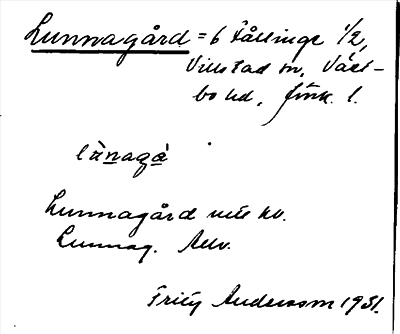 Lunnagård = 6 Fållinge 1/2,
Villstad sn, Väst-
bo hd, Jönk. l.
lùnagà
Lunnagård utt. kv.
Lunnag. Adv.
Fritz Andersson 1931.